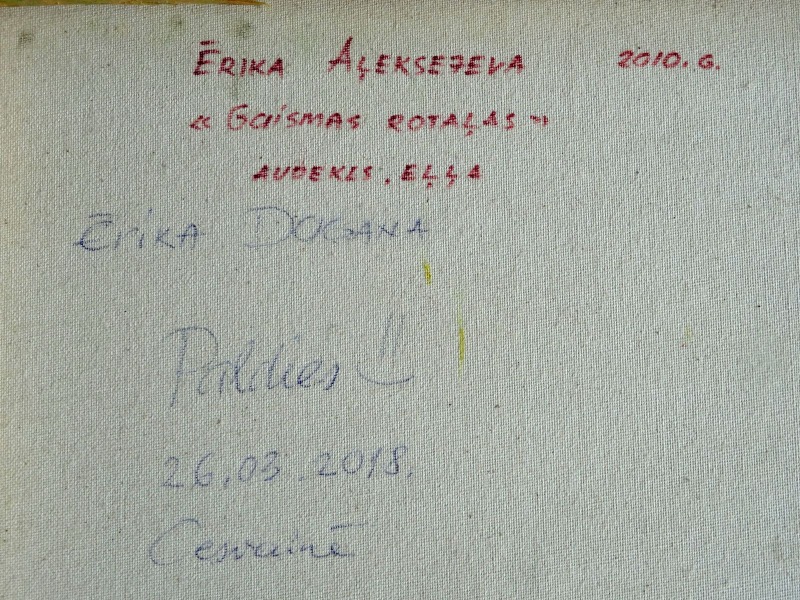 Ērika Aļeksejeva 2010. g.
« Gaismas rotaļas »
audekls, eļļa
Ērika Dogana
Paldies !!
26.03.2018.
Cesvainē